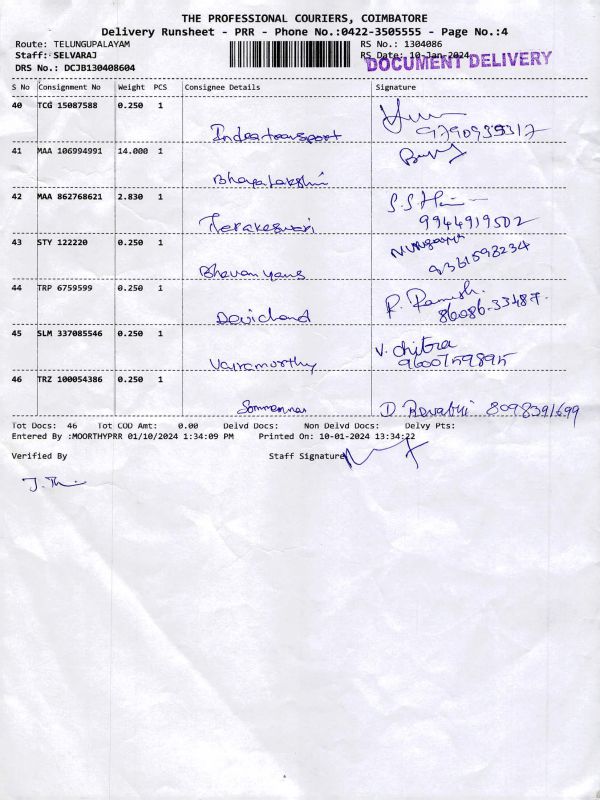 THE PROFESSIONAL COURIERS, COIMBATORE
Delivery Runsheet - PRR - Phone No.:0422-3505555 - Page No.:4
Route: TELUNGUPALAYAM RS No.: 1304086
Staff: SELVARAJ RS Date: 10-Jan-2024
DOCUMENT DELIVERY
DRS No.: DCJB130408604
S No Consignment No Weight PCS Consignee Details Signature
40 TCG 15087588 0.250 1
Indeotransport 9790939317
41 MAA 106994991 14.000 1
Bhagalakshmi
42 MAA 862768621 2.830 1
Terakeswari 9944919502
43 STY 122220 0.250 1
Bhavan yens 9361598234
44 TRP 6759599 0.250 1 R. Ramesh.
Devichand 86086-33487.
45 SLM 337085546 0.250 1 V. Chitra
Vairamorthy 9600759895
46 TRZ 100054386 0.250 1
D. Revathi 8098391699
Tot Docs: 46 Tot COD Amt: 0.00 Delvd Docs: Non Delvd Docs: Delvy Pts:
Entered By :MOORTHYPRR 01/10/2024 1:34:09 PM Printed On: 10-01-2024 13:34:22
Verified By Staff Signature